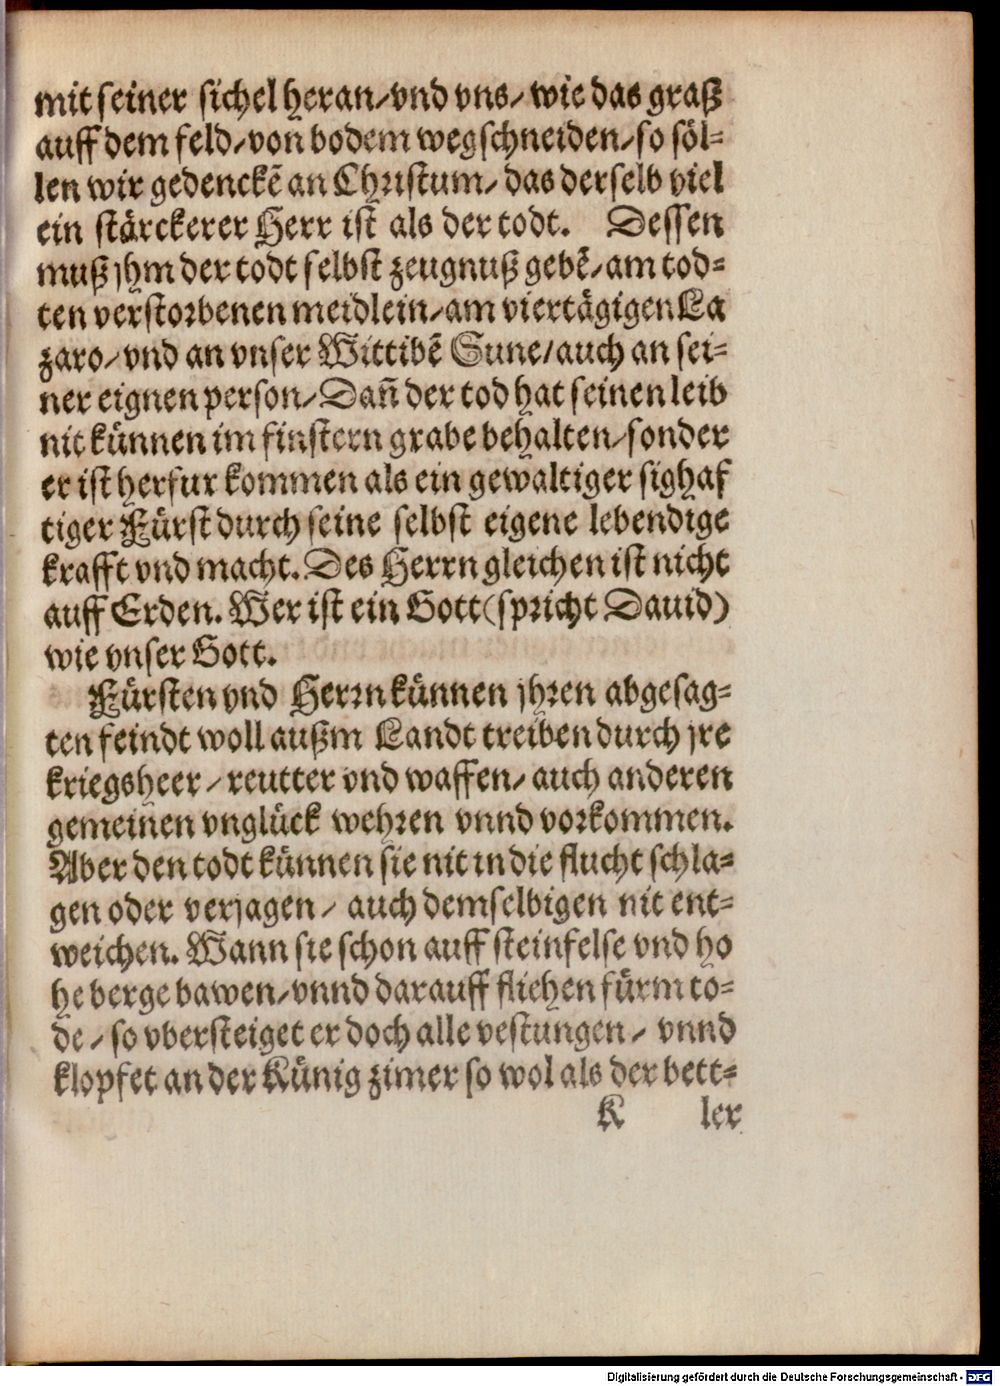 mit seiner sichel heran/vnd vns/wie das graß
auff dem feld/von bodem wegschneiden/so söl-
len wir gedenckẽ an Christum/das derselb viel
ein stärckerer Herr ist als der todt. Dessen
muß jhm der todt selbst zeugnuß gebẽ/am tod-
ten verstorbenen meidlein/am viertägigen La
zaro/vnd an vnser Wittibẽ Sune/auch an sei-
ner eignen person/Dañ der tod hat seinen leib
nit künnen im finstern grabe behalten/sonder
er ist herfur kommen als ein gewaltiger sighaf
tiger Fürst durch seine selbst eigene lebendige
krafft vnd macht. Des Herrn gleichen ist nicht
auff Erden. Wer ist ein Gott (spricht Dauid)
wie vnser Gott.
Fürsten vnd Herrn künnen jhren abgesag-
ten feindt woll außm Landt treiben durch jre
kriegsheer/reutter vnd waffen/auch anderen
gemeinen vnglück wehren vnnd vorkommen.
Aber den todt künnen sie nit in die flucht schla-
gen oder verjagen/auch demselbigen nit ent-
weichen. Wann sie schon auff steinfelse vnd ho
he berge bawen/vnnd darauff fliehen fürm to-
de/so vbersteiget er doch alle vestungen/vnnd
klopfet an der Künig zimer so wol als der bett-
K ler
Digitalisierung gefördert durch die Deutsche Forschungsgemeinschaft - DFG